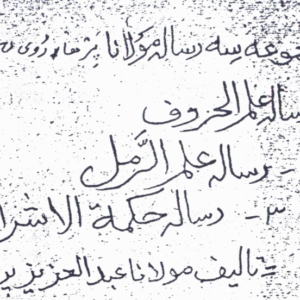 موعه سه رساله مولانا پڑھاروی
رساله علم الحروف
- رساله علم الرَّمل
٣- رساله حكمة الاشرا
= تاليف مولانا عبدالعزيز پر